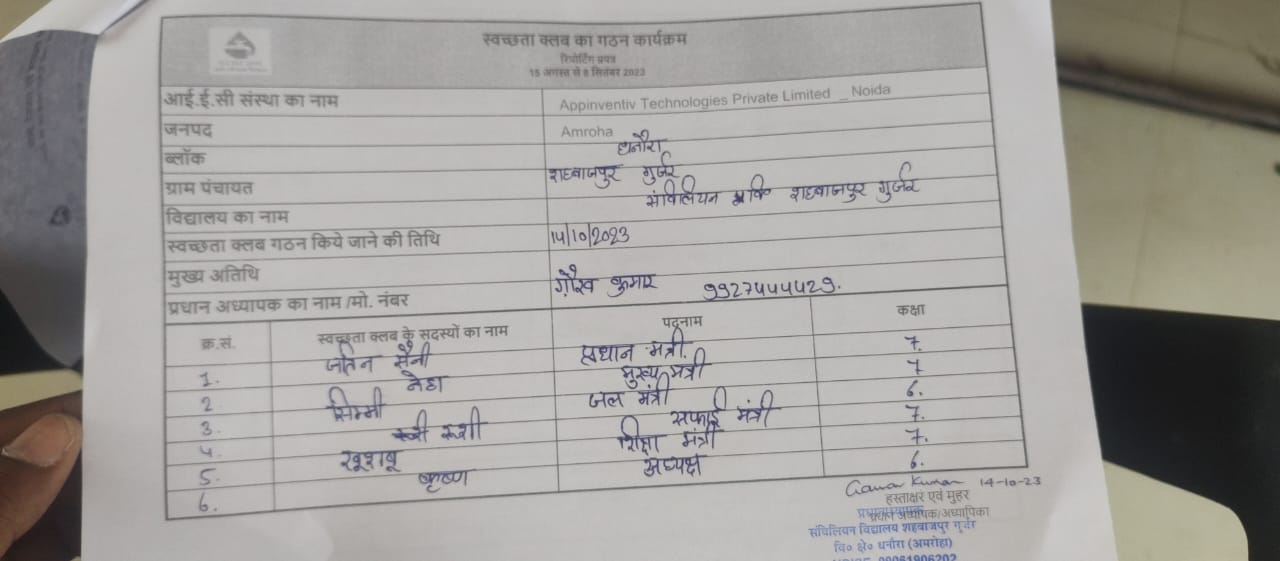 स्वच्छता क्लब का गठन कार्यक्रम
रिपोर्टिंग प्रपत्र
15 अगस्त से 8 सितंबर 2023
आई.ई.सी संस्था का नाम Appinventiv Technologies Private Limited _ Noida
जनपद Amroha
ब्लॉक धनौरा
ग्राम पंचायत शहबाजपुर गुर्जर
विद्यालय का नाम संविलियन वि० शहबाजपुर गुर्जर
स्वच्छता क्लब गठन किये जाने की तिथि 14/10/2023
मुख्य अतिथि
प्रधान अध्यापक का नाम /मो. नंबर गौरव कुमार 9927444429.
क्र.सं. स्वच्छता क्लब के सदस्यों का नाम पदनाम कक्षा
1. जतिन सैनी प्रधान मंत्री. 7.
2 नेहा मुख्य मंत्री 7
3. सिम्मी जल मंत्री 6.
4. रूशी सफाई मंत्री 7.
5. खूशबू शिक्षा मंत्री 7.
6. कृष्ण अध्यक्ष 6.
Gaurav Kumar 14-10-23
हस्ताक्षर एवं मुहर
प्रधान अध्यापक/अध्यापिका
संविलियन विद्यालय शहबाजपुर गुर्जर
वि० क्षे० धनौरा (अमरोहा)